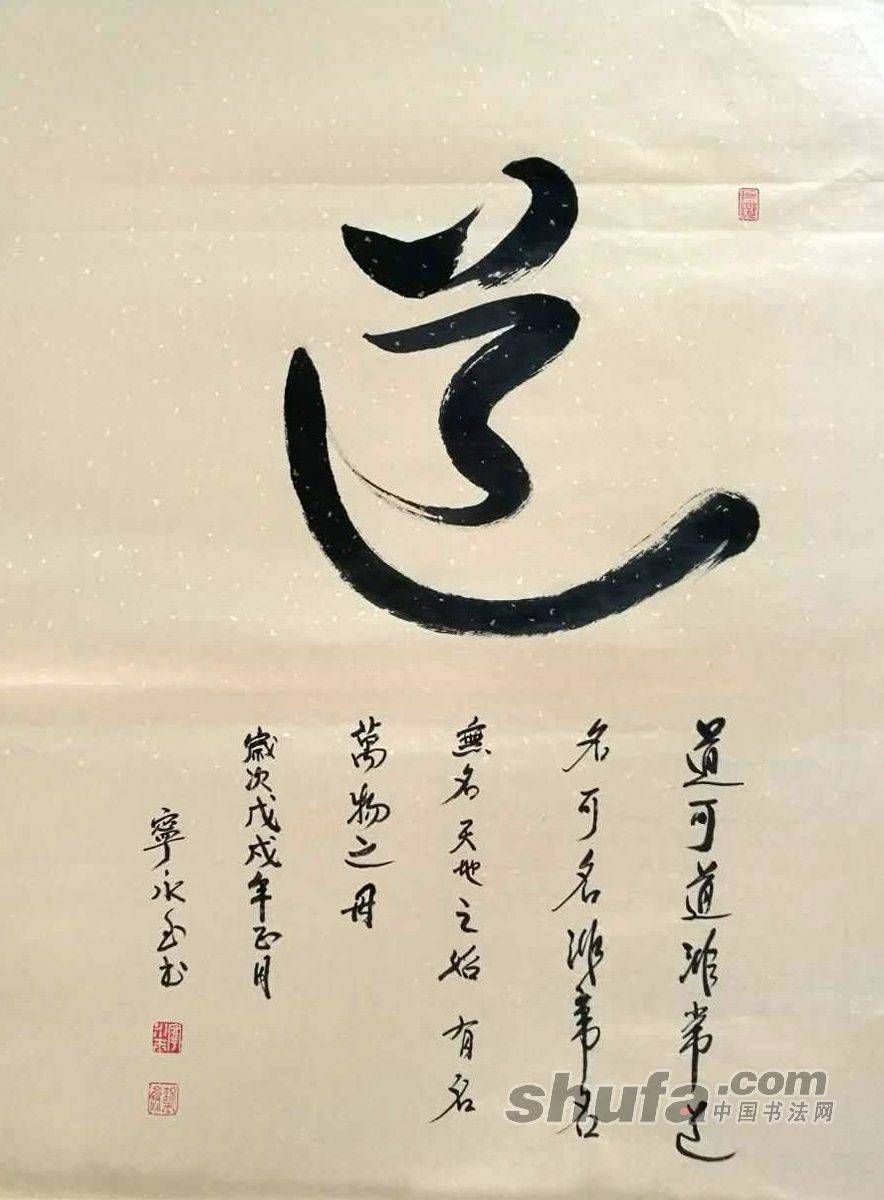 道
道可道非常道
名可名非常名
無名天地之始 有名
萬物之母
歲次戊戌年正月
寧永
shufa.com
中国书法网